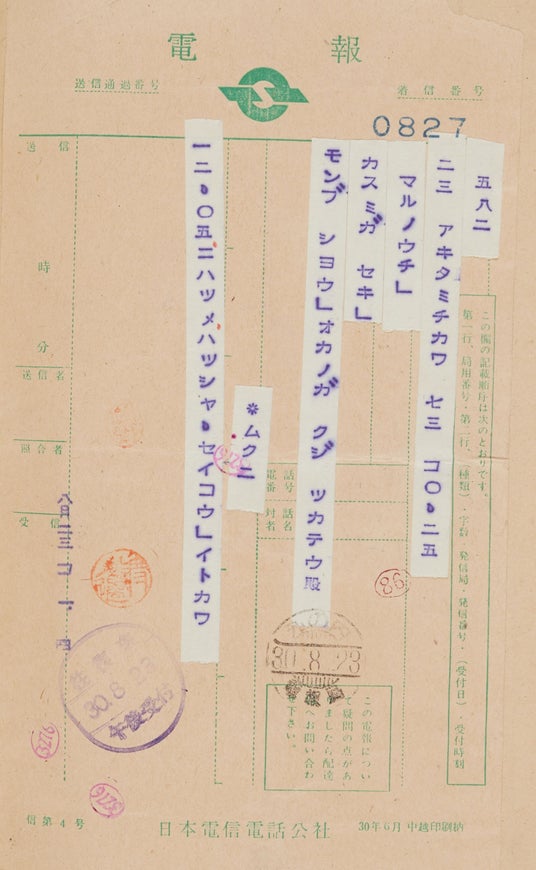 電報
送信通過番号
着信番号
0827
五八二
二三 アキタミチカワ 七三 コ〇・二五
マルノウチ」
カスミガ セキ」
モンブ シヨウ」オカノガ クジ ツカテウ殿
*ムク一
一二・〇五二ハツメハツシヤ・セイコウ」イトカワ
この欄の記載順序は次のとおりです。
第一行、局用番号・第二行、(種類)・字数・発信局・発信番号・(受付日)・受付時刻
送信
時
分
送信名
照合者
受信
電話番号
電話対話者名
30.8.23
30.8.23
午後受付
86
3276
3276
3276
この電報について疑問の点がありましたら配達
お問い合わ
下さい。
信第4号
日本電信電話公社
30年6月 中越印刷納